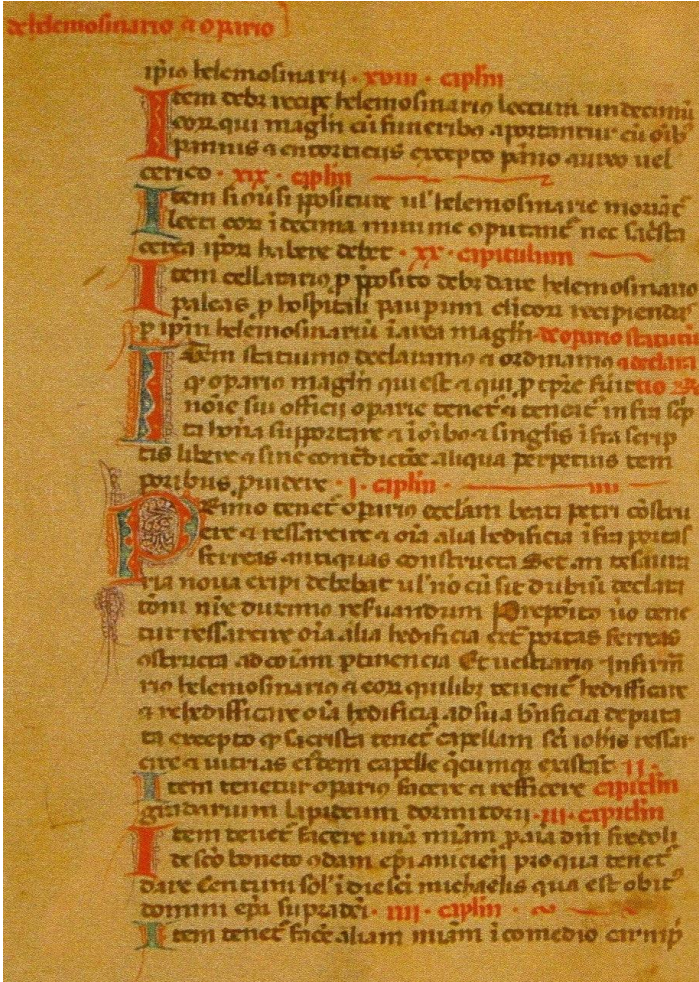 de helemosinario & opario
ip̄io helemosinarii · xviii · cap̄lm
Item debꝫ recipe helemosinario lectum undecimū
cori qui magl̄n cū funeribꝫ aportantur cū oībꝫ
pannis & entorticiis excepto pāno aureo uel
cerico · xix · cap̄lm
Item si ōusi p̄positure ul' helemosinarie moriāt
lecti eoꝝ ī decima minime oputant᷑ nec sac͛sta
cerea ip̄oꝝ habere debet · xx · capitulum
Item cellararioꝫ ꝑ p̄posito debꝫ dare helemosinario
paleas ꝑ hospitali paupum & licori recipienda
ꝑ ip̄m helemosinariū ī area magl̄n de opario statutū
Item statuimꝰ declaramꝰ & ordinamꝰ & declara
ꝙ oparioꝰ magl̄n qui est & qui ꝑ tp̄re fuit tio
nōie sui officii oparie tenet᷑ & teneat᷑ infra sc̄p
ta hōna supportare & ī oībꝫ & singl̄is īfra scrip
tis libere & sine cont͛dictiōe aliqua perpetuis tem
poribus ꝓuidere · i · cap̄lm
Primo tenet᷑ opario eccl̄am beati petri cōstru
ere & ressarcire & oīa alia hedificia īfra portas
ferreas antiquas constructa Set an restaura
ria noua eripi debebat ul' no cū sit dubiū declara
tōni nr̄e duximꝰ reseruandum Prepōito ūo tene
tur ressarcire oīa alia hedificia ext͛ portas ferreas
ꝯstructa ad coīam ꝑtinencia Et uestiario Infirm̄
rio helemosinario & eoꝝ quilibꝫ tenent᷑ hedifficare
& rehedifficare oīa hedificia ad sua bn̄ficia deputa
ta excepto ꝙ sacrista tenet᷑ capellam sc̄i ioh̄is ressar
cire & uitrias eiꝰdem capelle q̄cumqꝫ existat II
Item tenetur opario facere & refficere capitl̄m
gradarium lapideum dormitorii · III · capitl̄m
Item tenet᷑ facere unā miām ꝑ aīa dn̄i stecoli
de sc̄o boneto ꝯdam ep̄i aniciēn̄ pro qua tenet᷑
dare Centum sol' ī die sc̄i michaelis qua est obit᷑
domini ep̄i supradc̄i · IIII · cap̄lm
Item tenet᷑ fac͛e aliam miām ī comedio carnip̄